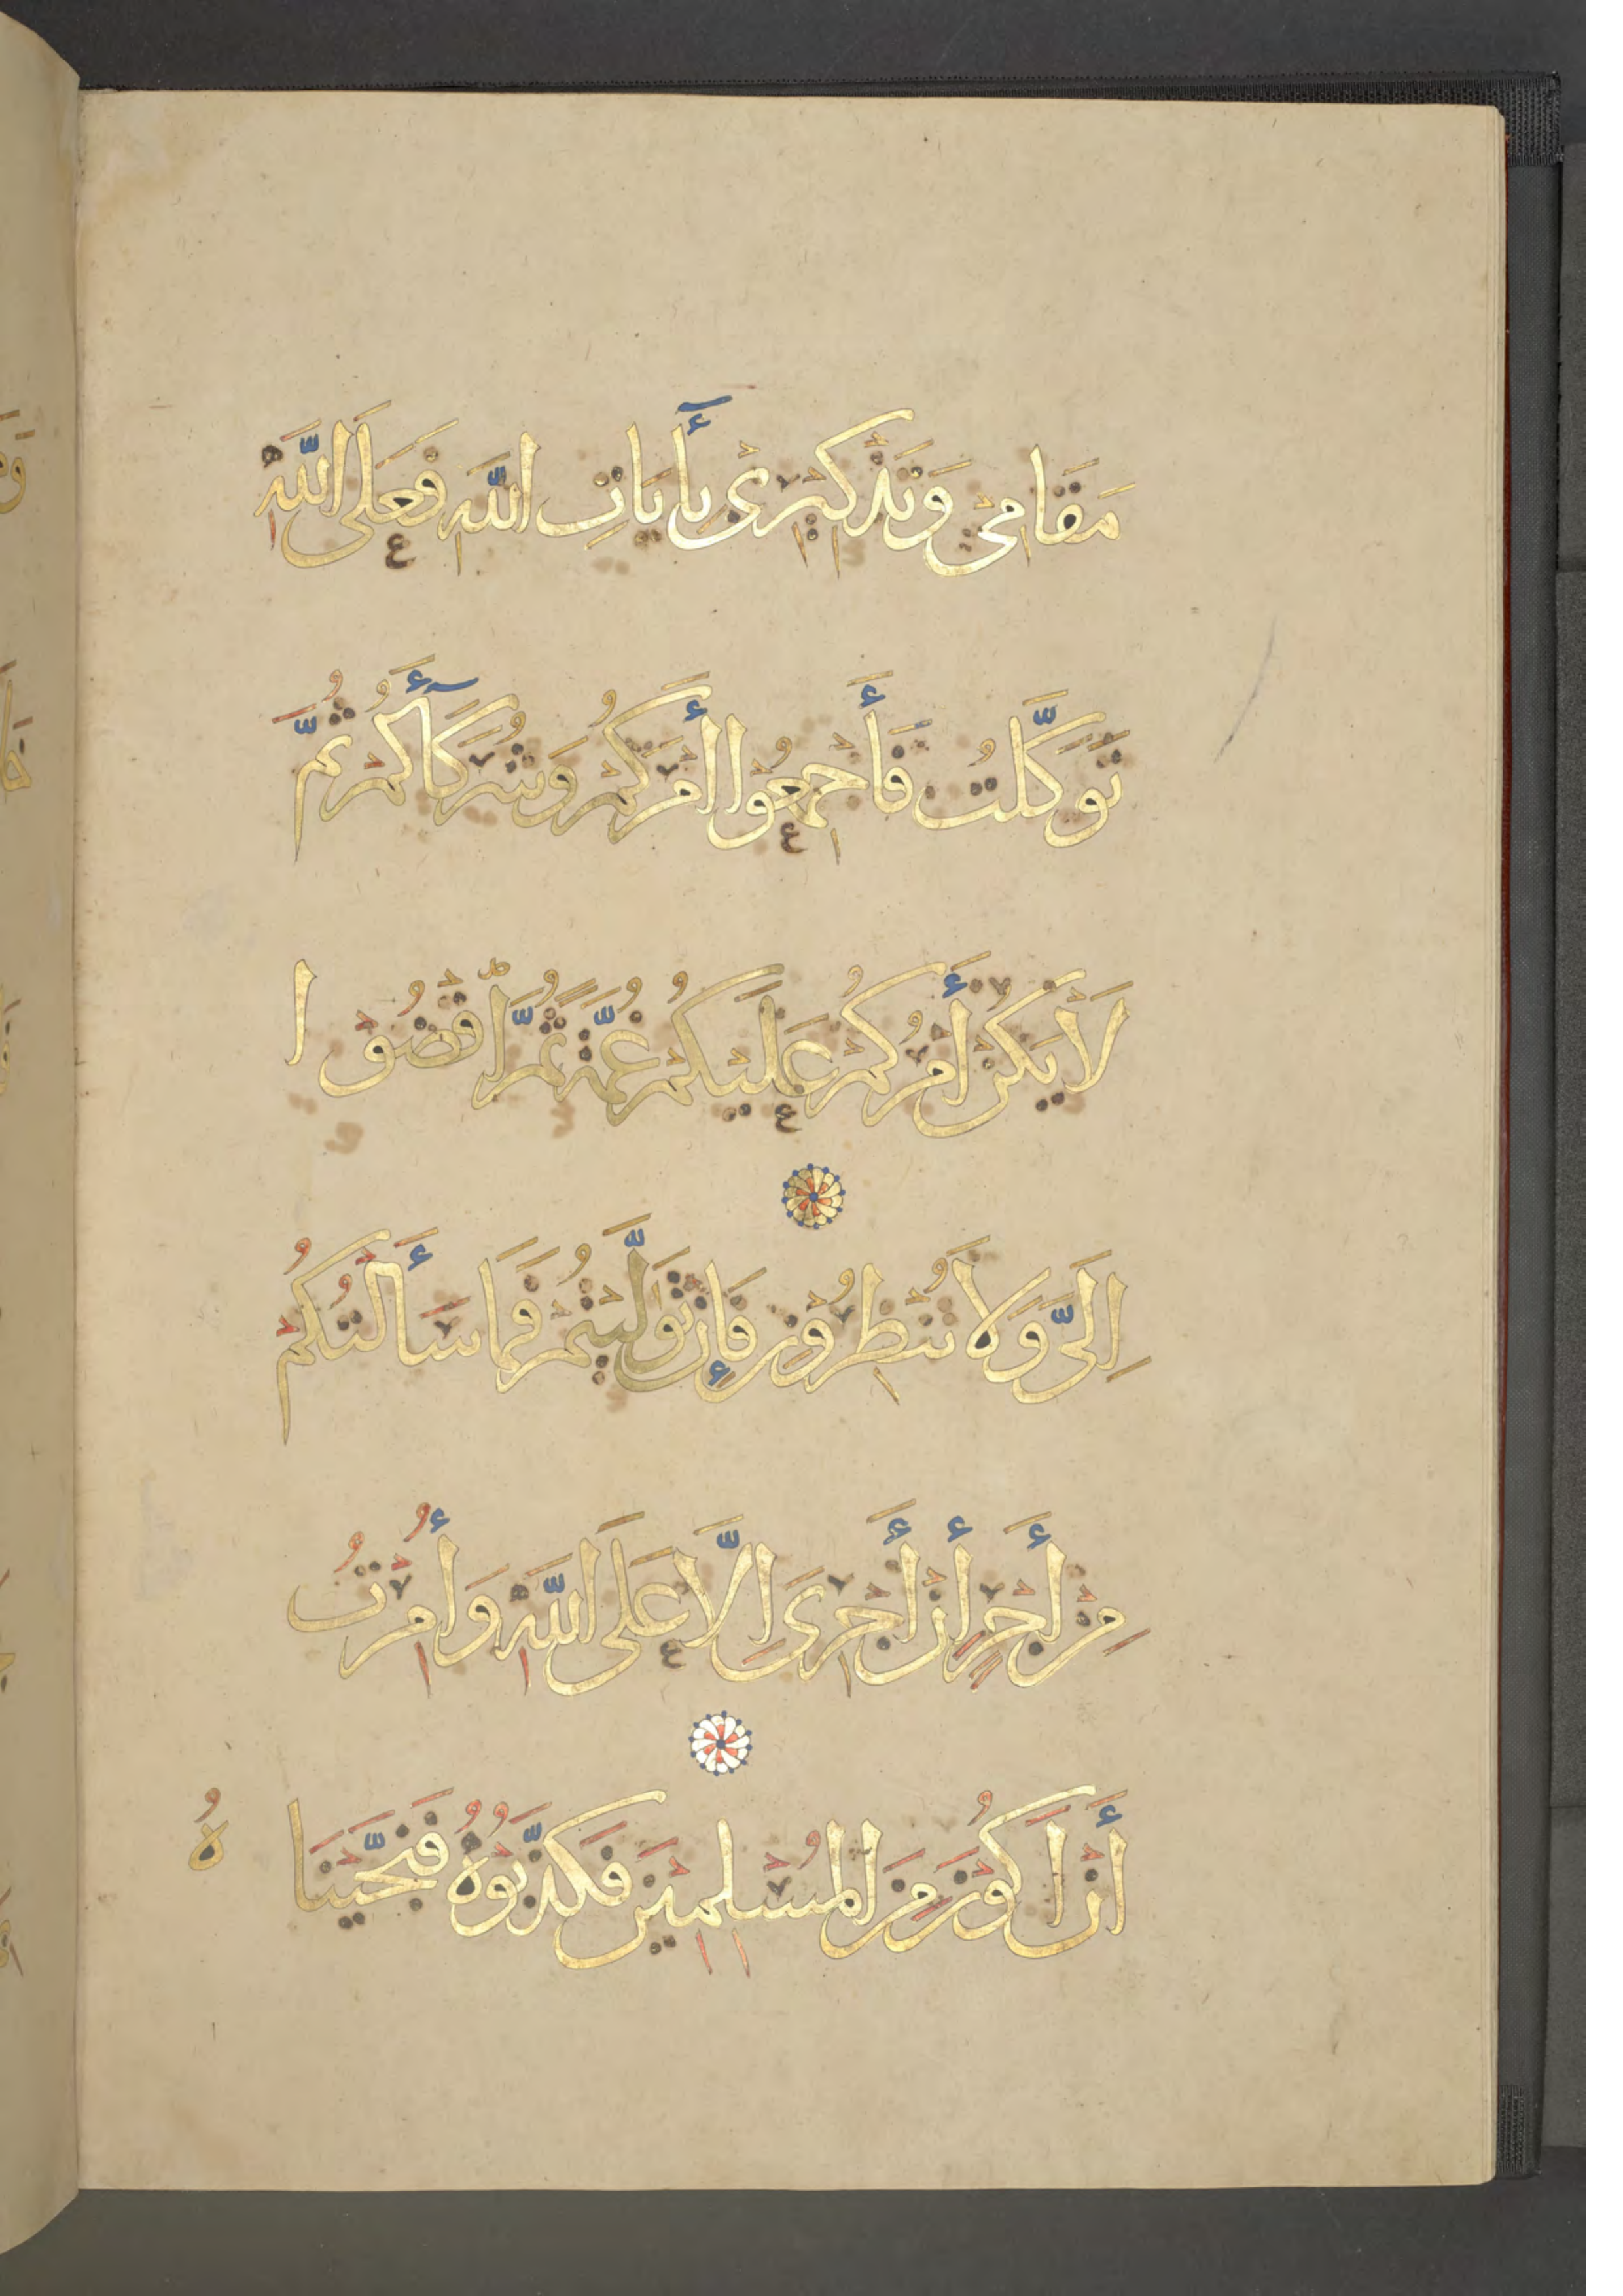 مَقَامِي وَتَذْكِيرِي بِأٓيَاتِ اللَّهِ فَعَلَى اللَّهِ
تَوَكَّلْتُ فَأَجْمِعُوْا أَمْرَكُمْ وَشُرَكَآأَكُمْ ثُمَّ
لَا يَكُنْ أَمْرُكُمْ عَلَيْكُمْ غُمَّةً ثُمَّ اقْضُوْا
اِلَيَّ وَلَا تُنْظِرُوْنِ فَإِنْ تَوَلَّيْتُمْ فَمَا سَأَلْتُكُمْ
مِنْ أَجْرٍ أنْ أَجْرِيَ اِلَّا عَلَى اللَّهِ وَأُمِرْتُ
أَنْ اَكُوْنَ مِنَ الْمُسْلِمِيْنَ فَكَذَّبُوْهُ فَنَجَّيْنَاهُ